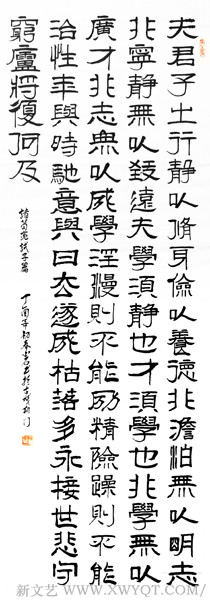 夫君子之行静以脩身儉以養德非澹泊無以明志
非寧静無以致遠夫學須静也才須學也非學無以
廣才非志無以成學淫慢則不能励精險躁則不能
冶性年與時馳意與日去遂成枯落多不接世悲守
窮廬將復何及
諸葛亮誡子篇
新文艺 WWW.XWYQT.COM